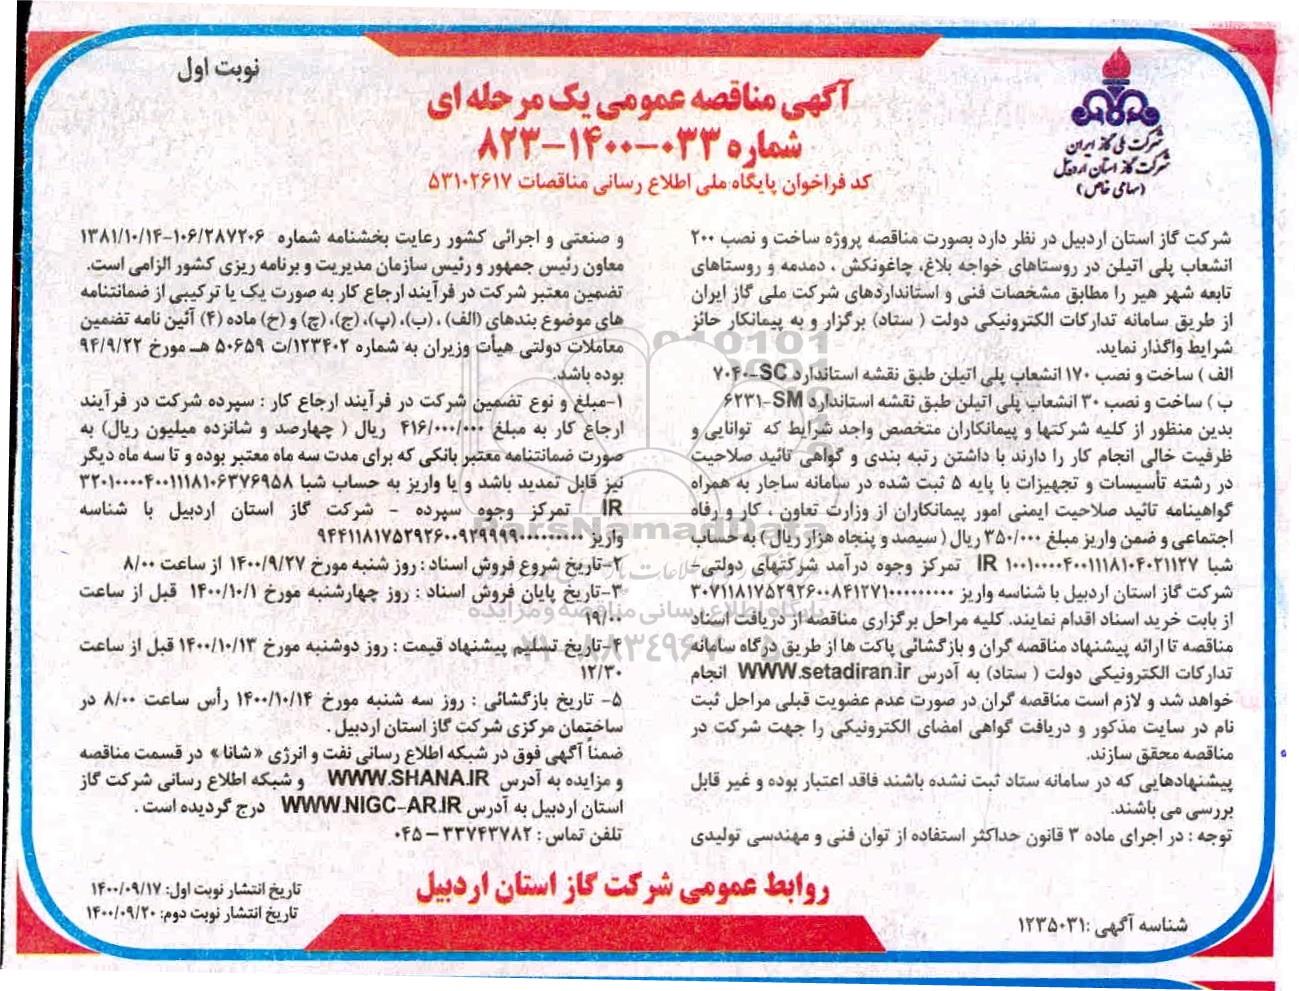 نوبت اول
آگهی مناقصه عمومی یک مرحله ای
شماره ۰۳۳-۱۴۰۰-۸۲۳
کد فراخوان پایگاه ملی اطلاع رسانی مناقصات ۵۳۱۰۲۶۱۷
شرکت ملی گاز ایران
شرکت گاز استان اردبیل
(سهامی خاص)
شرکت گاز استان اردبیل در نظر دارد بصورت مناقصه پروژه ساخت و نصب ۲۰۰
انشعاب پلی اتیلن در روستاهای خواجه بلاغ، چاغونکش ، دمدمه و روستاهای
تابعه شهر هیر را مطابق مشخصات فنی و استانداردهای شرکت ملی گاز ایران
از طریق سامانه تدارکات الکترونیکی دولت ( ستاد) برگزار و به پیمانکار حائز
شرایط واگذار نماید.
الف ) ساخت و نصب ۱۷۰ انشعاب پلی اتیلن طبق نقشه استاندارد SC-۷۰۴۰
ب ) ساخت و نصب ۳۰ انشعاب پلی اتیلن طبق نقشه استاندارد SM-۶۲۳۱
بدین منظور از کلیه شرکتها و پیمانکاران متخصص واجد شرایط که توانایی و
ظرفیت خالی انجام کار را دارند با داشتن رتبه بندی و گواهی تائید صلاحیت
در رشته تأسیسات و تجهیزات با پایه ۵ ثبت شده در سامانه ساجار به همراه
گواهینامه تائید صلاحیت ایمنی امور پیمانکاران از وزارت تعاون ، کار و رفاه
اجتماعی و ضمن واریز مبلغ ۳۵۰/۰۰۰ ریال ( سیصد و پنجاه هزار ریال) به حساب
شبا IR ۱۰۰۱۰۰۰۰۴۰۰۱۱۱۸۱۰۴۰۲۱۱۲۷ تمرکز وجوه درآمد شرکتهای دولتی-
شرکت گاز استان اردبیل با شناسه واریز ۳۰۷۱۱۸۱۷۵۲۹۲۶۰۰۸۴۱۲۷۱۰۰۰۰۰۰۰۰۰
از بابت خرید اسناد اقدام نمایند. کلیه مراحل برگزاری مناقصه از دریافت اسناد
مناقصه تا ارائه پیشنهاد مناقصه گران و بازگشائی پاکت ها از طریق درگاه سامانه
تدارکات الکترونیکی دولت ( ستاد) به آدرس WWW.setadiran.ir انجام
خواهد شد و لازم است مناقصه گران در صورت عدم عضویت قبلی مراحل ثبت
نام در سایت مذکور و دریافت گواهی امضای الکترونیکی را جهت شرکت در
مناقصه محقق سازند.
پیشنهادهایی که در سامانه ستاد ثبت نشده باشند فاقد اعتبار بوده و غیر قابل
بررسی می باشند.
توجه : در اجرای ماده ۳ قانون حداکثر استفاده از توان فنی و مهندسی تولیدی
و صنعتی و اجرائی کشور رعایت بخشنامه شماره ۱۰۶/۲۸۷۲۰۶-۱۳۸۱/۱۰/۱۴
معاون رئیس جمهور و رئیس سازمان مدیریت و برنامه ریزی کشور الزامی است.
تضمین معتبر شرکت در فرآیند ارجاع کار به صورت یک یا ترکیبی از ضمانتنامه
های موضوع بندهای (الف) ، (ب)، (پ)، (ج)، (چ) و (ح) ماده (۴) آئین نامه تضمین
معاملات دولتی هیأت وزیران به شماره ۱۲۳۴۰۲/ت ۵۰۶۵۹ هـ مورخ ۹۴/۹/۲۲
بوده باشد.
۱-مبلغ و نوع تضمین شرکت در فرآیند ارجاع کار : سپرده شرکت در فرآیند
ارجاع کار به مبلغ ۴۱۶/۰۰۰/۰۰۰ ریال ( چهارصد و شانزده میلیون ریال) به
صورت ضمانتنامه معتبر بانکی که برای مدت سه ماه معتبر بوده و تا سه ماه دیگر
نیز قابل تمدید باشد و یا واریز به حساب شبا ۳۲۰۱۰۰۰۰۴۰۰۱۱۱۸۱۰۶۳۷۶۹۵۸
IR تمرکز وجوه سپرده - شرکت گاز استان اردبیل با شناسه
واریز ۹۴۴۱۱۸۱۷۵۲۹۲۶۰۰۹۲۹۹۹۹۰۰۰۰۰۰۰۰۰
۲-تاریخ شروع فروش اسناد : روز شنبه مورخ ۱۴۰۰/۹/۲۷ از ساعت ۸/۰۰
۳-تاریخ پایان فروش اسناد : روز چهارشنبه مورخ ۱۴۰۰/۱۰/۱ قبل از ساعت
۱۹/۰۰
۴-تاریخ تسلیم پیشنهاد قیمت : روز دوشنبه مورخ ۱۴۰۰/۱۰/۱۳ قبل از ساعت
۱۲/۳۰
۵- تاریخ بازگشائی : روز سه شنبه مورخ ۱۴۰۰/۱۰/۱۴ رأس ساعت ۸/۰۰ در
ساختمان مرکزی شرکت گاز استان اردبیل .
ضمناً آگهی فوق در شبکه اطلاع رسانی نفت و انرژی «شانا» در قسمت مناقصه
و مزایده به آدرس WWW.SHANA.IR و شبکه اطلاع رسانی شرکت گاز
استان اردبیل به آدرس WWW.NIGC-AR.IR درج گردیده است .
تلفن تماس : ۳۳۷۴۳۷۸۲ – ۰۴۵
روابط عمومی شرکت گاز استان اردبیل
تاریخ انتشار نوبت اول: ۱۴۰۰/۰۹/۱۷
تاریخ انتشار نوبت دوم: ۱۴۰۰/۰۹/۲۰
شناسه آگهی :۱۲۳۵۰۳۱
ParsNamadData
پایگاه اطلاع رسانی مناقصه و مزایده